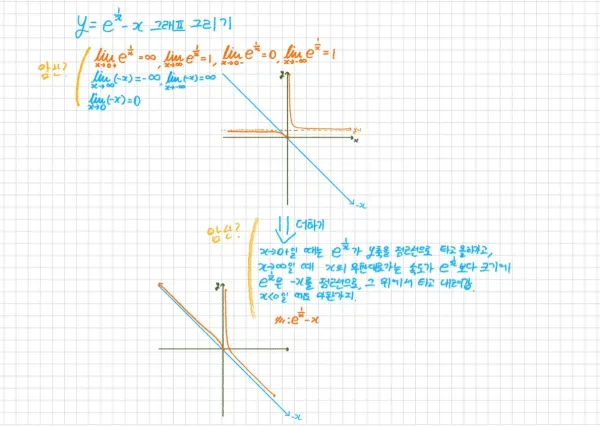 y = e^{\frac{1}{x}} - x 그래프 그리기
암산?
lim_{x→0+} e^{\frac{1}{x}} = ∞, lim_{x→∞} e^{\frac{1}{x}} = 1, lim_{x→0-} e^{\frac{1}{x}} = 0, lim_{x→-∞} e^{\frac{1}{x}} = 1
lim_{x→∞} (-x) = -∞, lim_{x→-∞} (-x) = ∞
lim_{x→0} (-x) = 0
y
y=1
x
-x
더하기
암산?
x→0+일 때는 e^{\frac{1}{x}}가 y축을 점근선으로 타고 올라가고,
x→∞일 때 x의 무한대로가는 속도가 e^{\frac{1}{x}}보다 크기에
e^{\frac{1}{x}}은 -x를 점근선으로, 그 위에서 타고 내려감.
x<0일 때도 마찬가지.
: e^{\frac{1}{x}} - x
-x